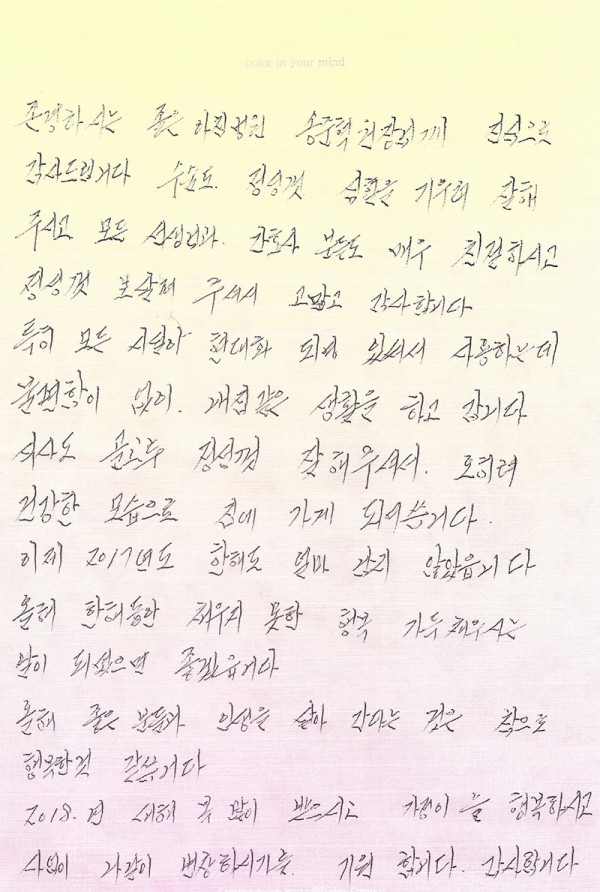 color in your mind
존경하시는 좋은아침병원 송준혁원장님께 진심으로
감사드립니다 수술도. 정성껏 심혈을 기우려 잘해
주시고 모든 선생님과. 간호사 분들도 매우 친절하시고
정성껏 보살펴 주셔서 고맙고 감사합니다
특히 모든 시설이 현대화 되어 있어서 사용하는데
불편함이 없이. 내집같은 생활을 하고 갑니다
식사도 골고루 정성껏 잘해주셔서. 오히려
건강한 모습으로 집에 가게 되어씁니다.
이제 2017년도 한해도 얼마 남지 않았읍니다
올해 한해동안 채우지 못한 행복 가득채우시는
날이 되셨으면 좋겠읍니다
올해 좋은 분들과 인생을 살아 간다는 것은 참으로
행복한것 같씁니다
2018.년 새해 복 많이 받으시고 가정이 늘 행복하시고
사업이 나날이 번창하시기를. 기원 합니다. 감사합니다